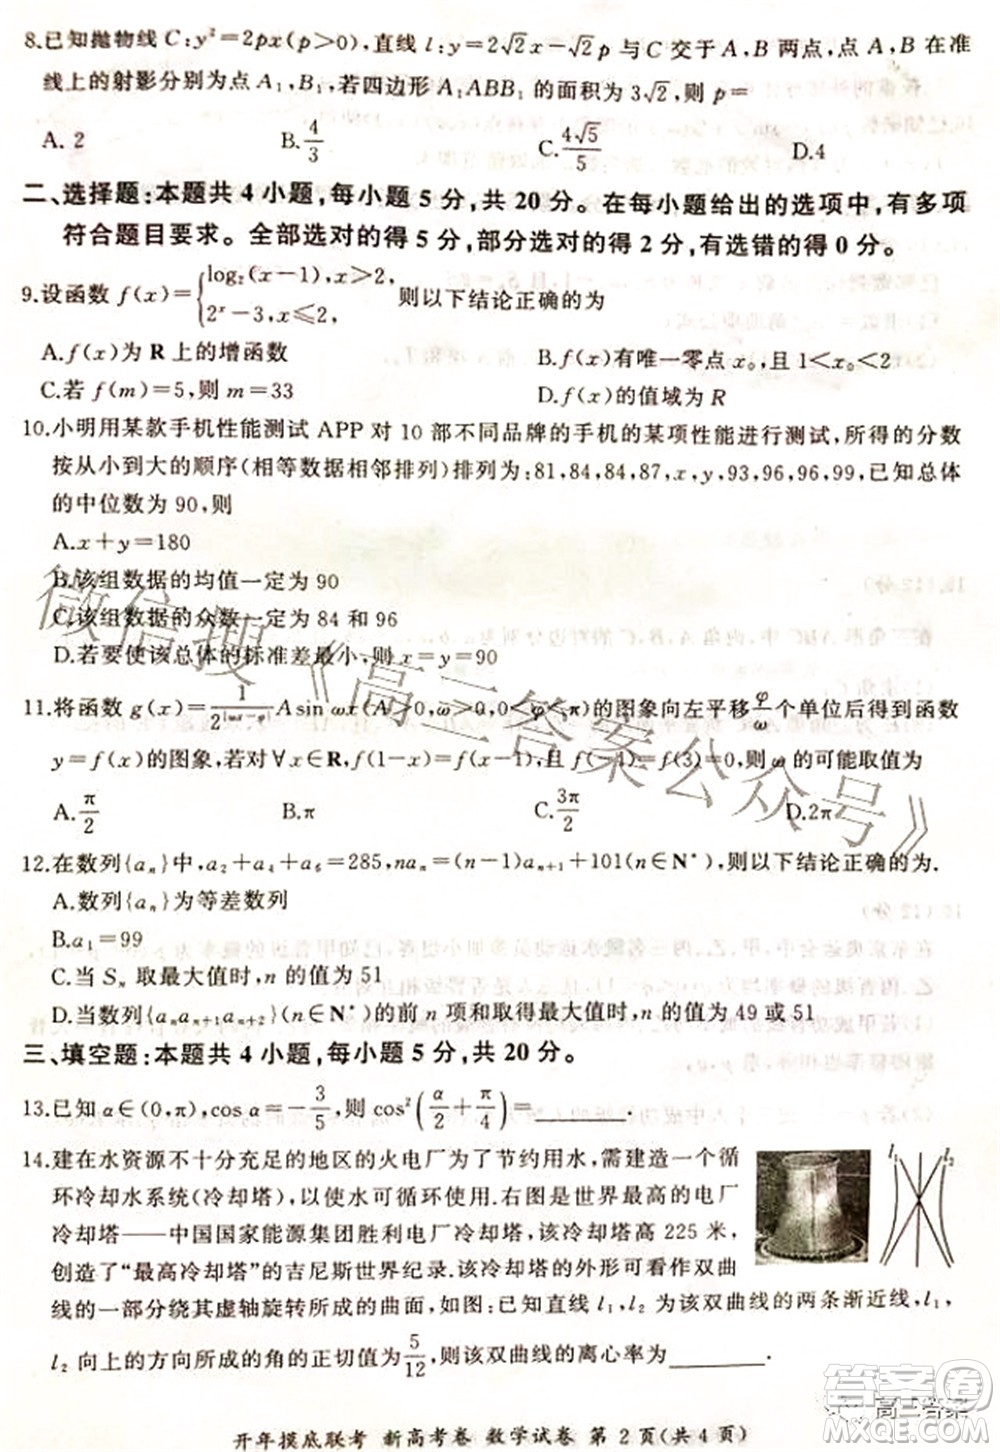 8.已知抛物线 C:y²=2px(p>0),直线 l:y=2√2x-√2p 与 C 交于 A,B 两点,点 A,B 在准
线上的射影分别为点 A₁,B₁,若四边形 A₁ABB₁ 的面积为 3√2,则 p=
A. 2 B. 4/3 C. 4√5/5 D.4
二、选择题:本题共 4 小题,每小题 5 分,共 20 分。在每小题给出的选项中,有多项
符合题目要求。全部选对的得 5 分,部分选对的得 2 分,有选错的得 0 分。
9.设函数 f(x)={log₂(x-1),x>2, 2ˣ-3,x≤2, 则以下结论正确的为
A.f(x)为 R 上的增函数 B.f(x)有唯一零点 x₀,且 1<x₀<2
C.若 f(m)=5,则 m=33 D.f(x)的值域为 R
10.小明用某款手机性能测试 APP 对 10 部不同品牌的手机的某项性能进行测试,所得的分数
按从小到大的顺序(相等数据相邻排列)排列为:81,84,84,87,x,y,93,96,96,99,已知总体
的中位数为 90,则
A.x+y=180
B.该组数据的均值一定为 90
C.该组数据的众数一定为 84 和 96
D.若要使该总体的标准差最小,则 x=y=90
11.将函数 g(x)= A sin ωx(A>0,ω>0,0<φ<π)的图象向左平移 φ/ω 个单位后得到函数
y=f(x)的图象,若对∀x∈R,f(1-x)=f(x),且 f(-4)=f(3)=0,则 ω 的可能取值为
A. π/2 B.π C. 3π/2 D.2π
12.在数列{aₙ}中,a₂+a₄+a₆=285,naₙ=(n-1)aₙ₊₁+101(n∈N*),则以下结论正确的为.
A.数列{aₙ}为等差数列
B.a₁=99
C.当 Sₙ 取最大值时,n 的值为 51
D.当数列{aₙaₙ₊₁aₙ₊₂}(n∈N*)的前 n 项和取得最大值时,n 的值为 49 或 51
三、填空题:本题共 4 小题,每小题 5 分,共 20 分。
13.已知 α∈(0,π),cos α=-3/5,则 cos²(α/2+π/4)=________.
14.建在水资源不十分充足的地区的火电厂为了节约用水,需建造一个循
环冷却水系统(冷却塔),以使水可循环使用.右图是世界最高的电厂
冷却塔——中国国家能源集团胜利电厂冷却塔,该冷却塔高 225 米,
创造了“最高冷却塔”的吉尼斯世界纪录.该冷却塔的外形可看作双曲
线的一部分绕其虚轴旋转所成的曲面,如图:已知直线 l₁,l₂ 为该双曲线的两条渐近线,l₁,
l₂ 向上的方向所成的角的正切值为 5/12,则该双曲线的离心率为________.
l₁ l₂
微信搜《高三答案公众号》
答案卷
高三答案
开年摸底联考 新高考卷 数学试卷 第 2 页(共 4 页)